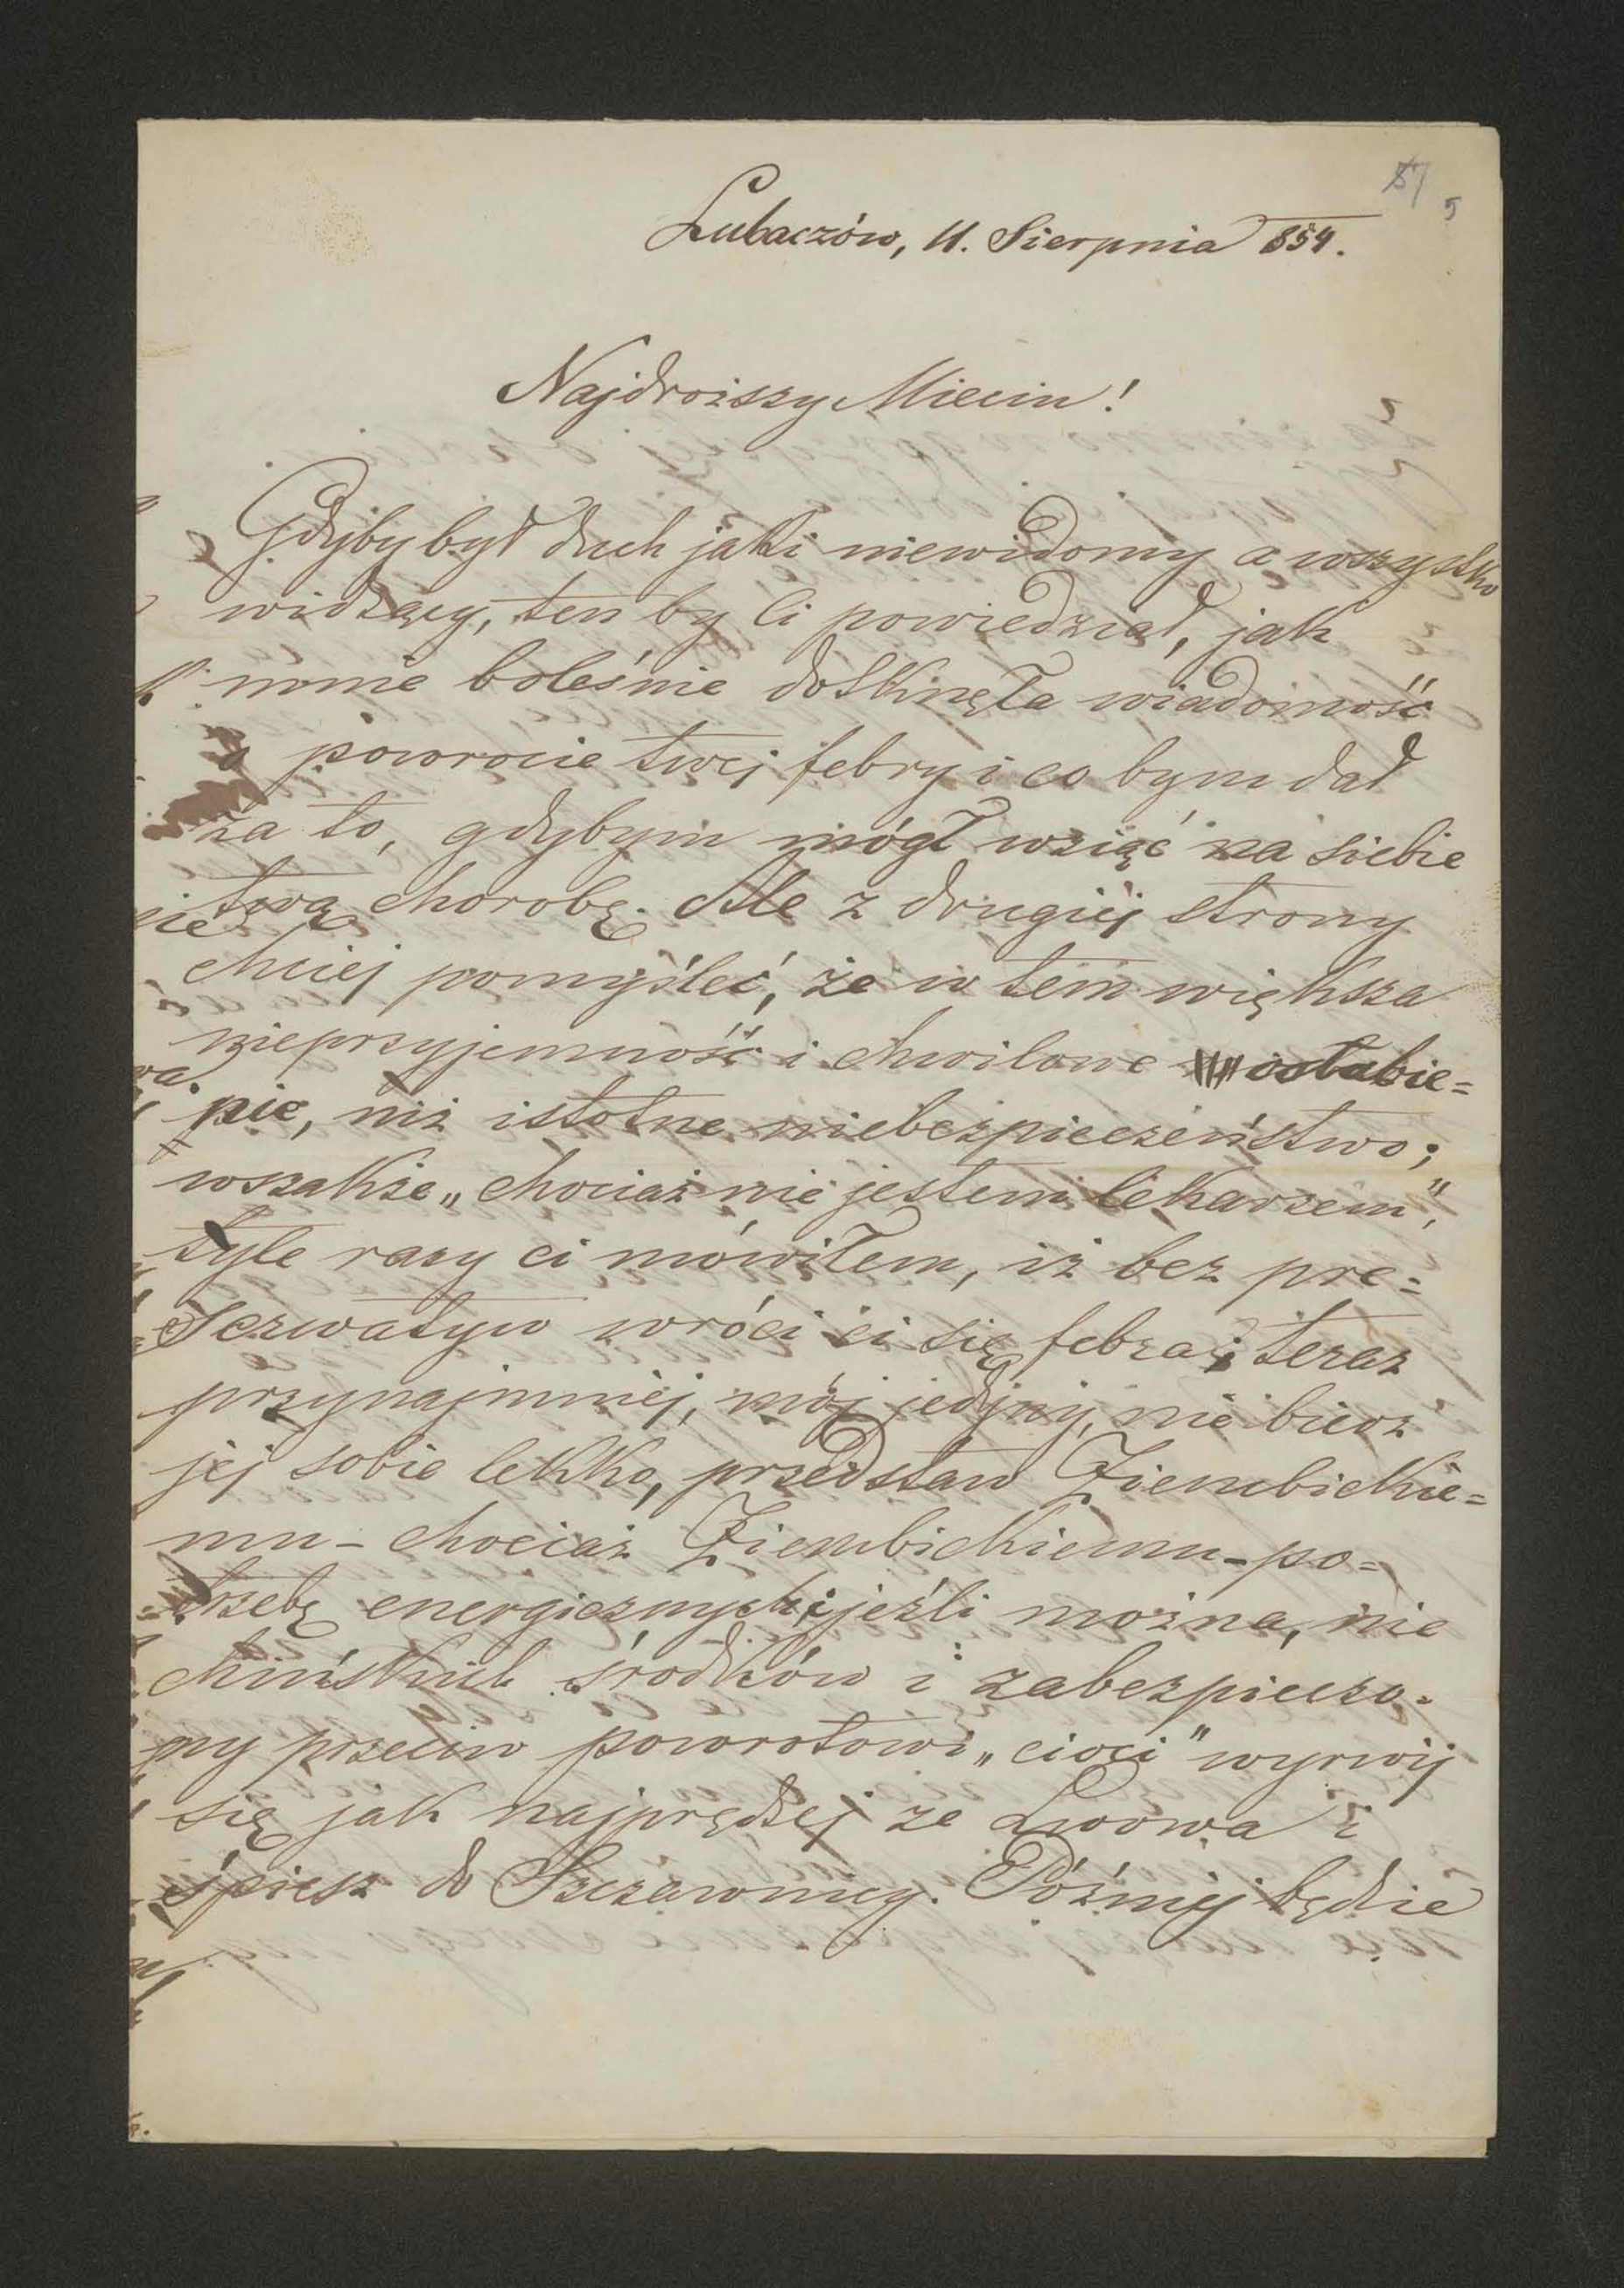 57 5
Lubaczów, 11. Sierpnia 854.
Najdroższy Mieciu!
Gdyby był duch jaki niewidomy a wszystko
widzący, ten by Ci powiedział, jak
mnie boleśnie dotknęła wiadomość
o powrocie twej febry i co bym dał
za to, gdybym mógł wziąć na siebie
twą chorobę. Ale z drugiéj strony
chciej pomyśleć, że w tém większa
nieprzyjemność i chwilowe osłabie=
nie, niż istotne niebezpieczeństwo;
wszakże „chociaż nie jestem lekarzem",
tyle razy ci mówiłem, iż bez pre=
serwatyw wróci ci się febra; teraz
przynajmniéj, mój jedyny, nie bierz
jéj sobie lekko, przedstaw Ziembickie=
mu – chociaż Ziembickiemu – po=
trzebę energicznych i jeźli można, nie
chińskich środków i zabezpieczo=
ny przeciw powrotowi „cioci" wyrwij
się jak najprędzej ze Lwowa i
śpiesz do Szczawnicy. Później będzie